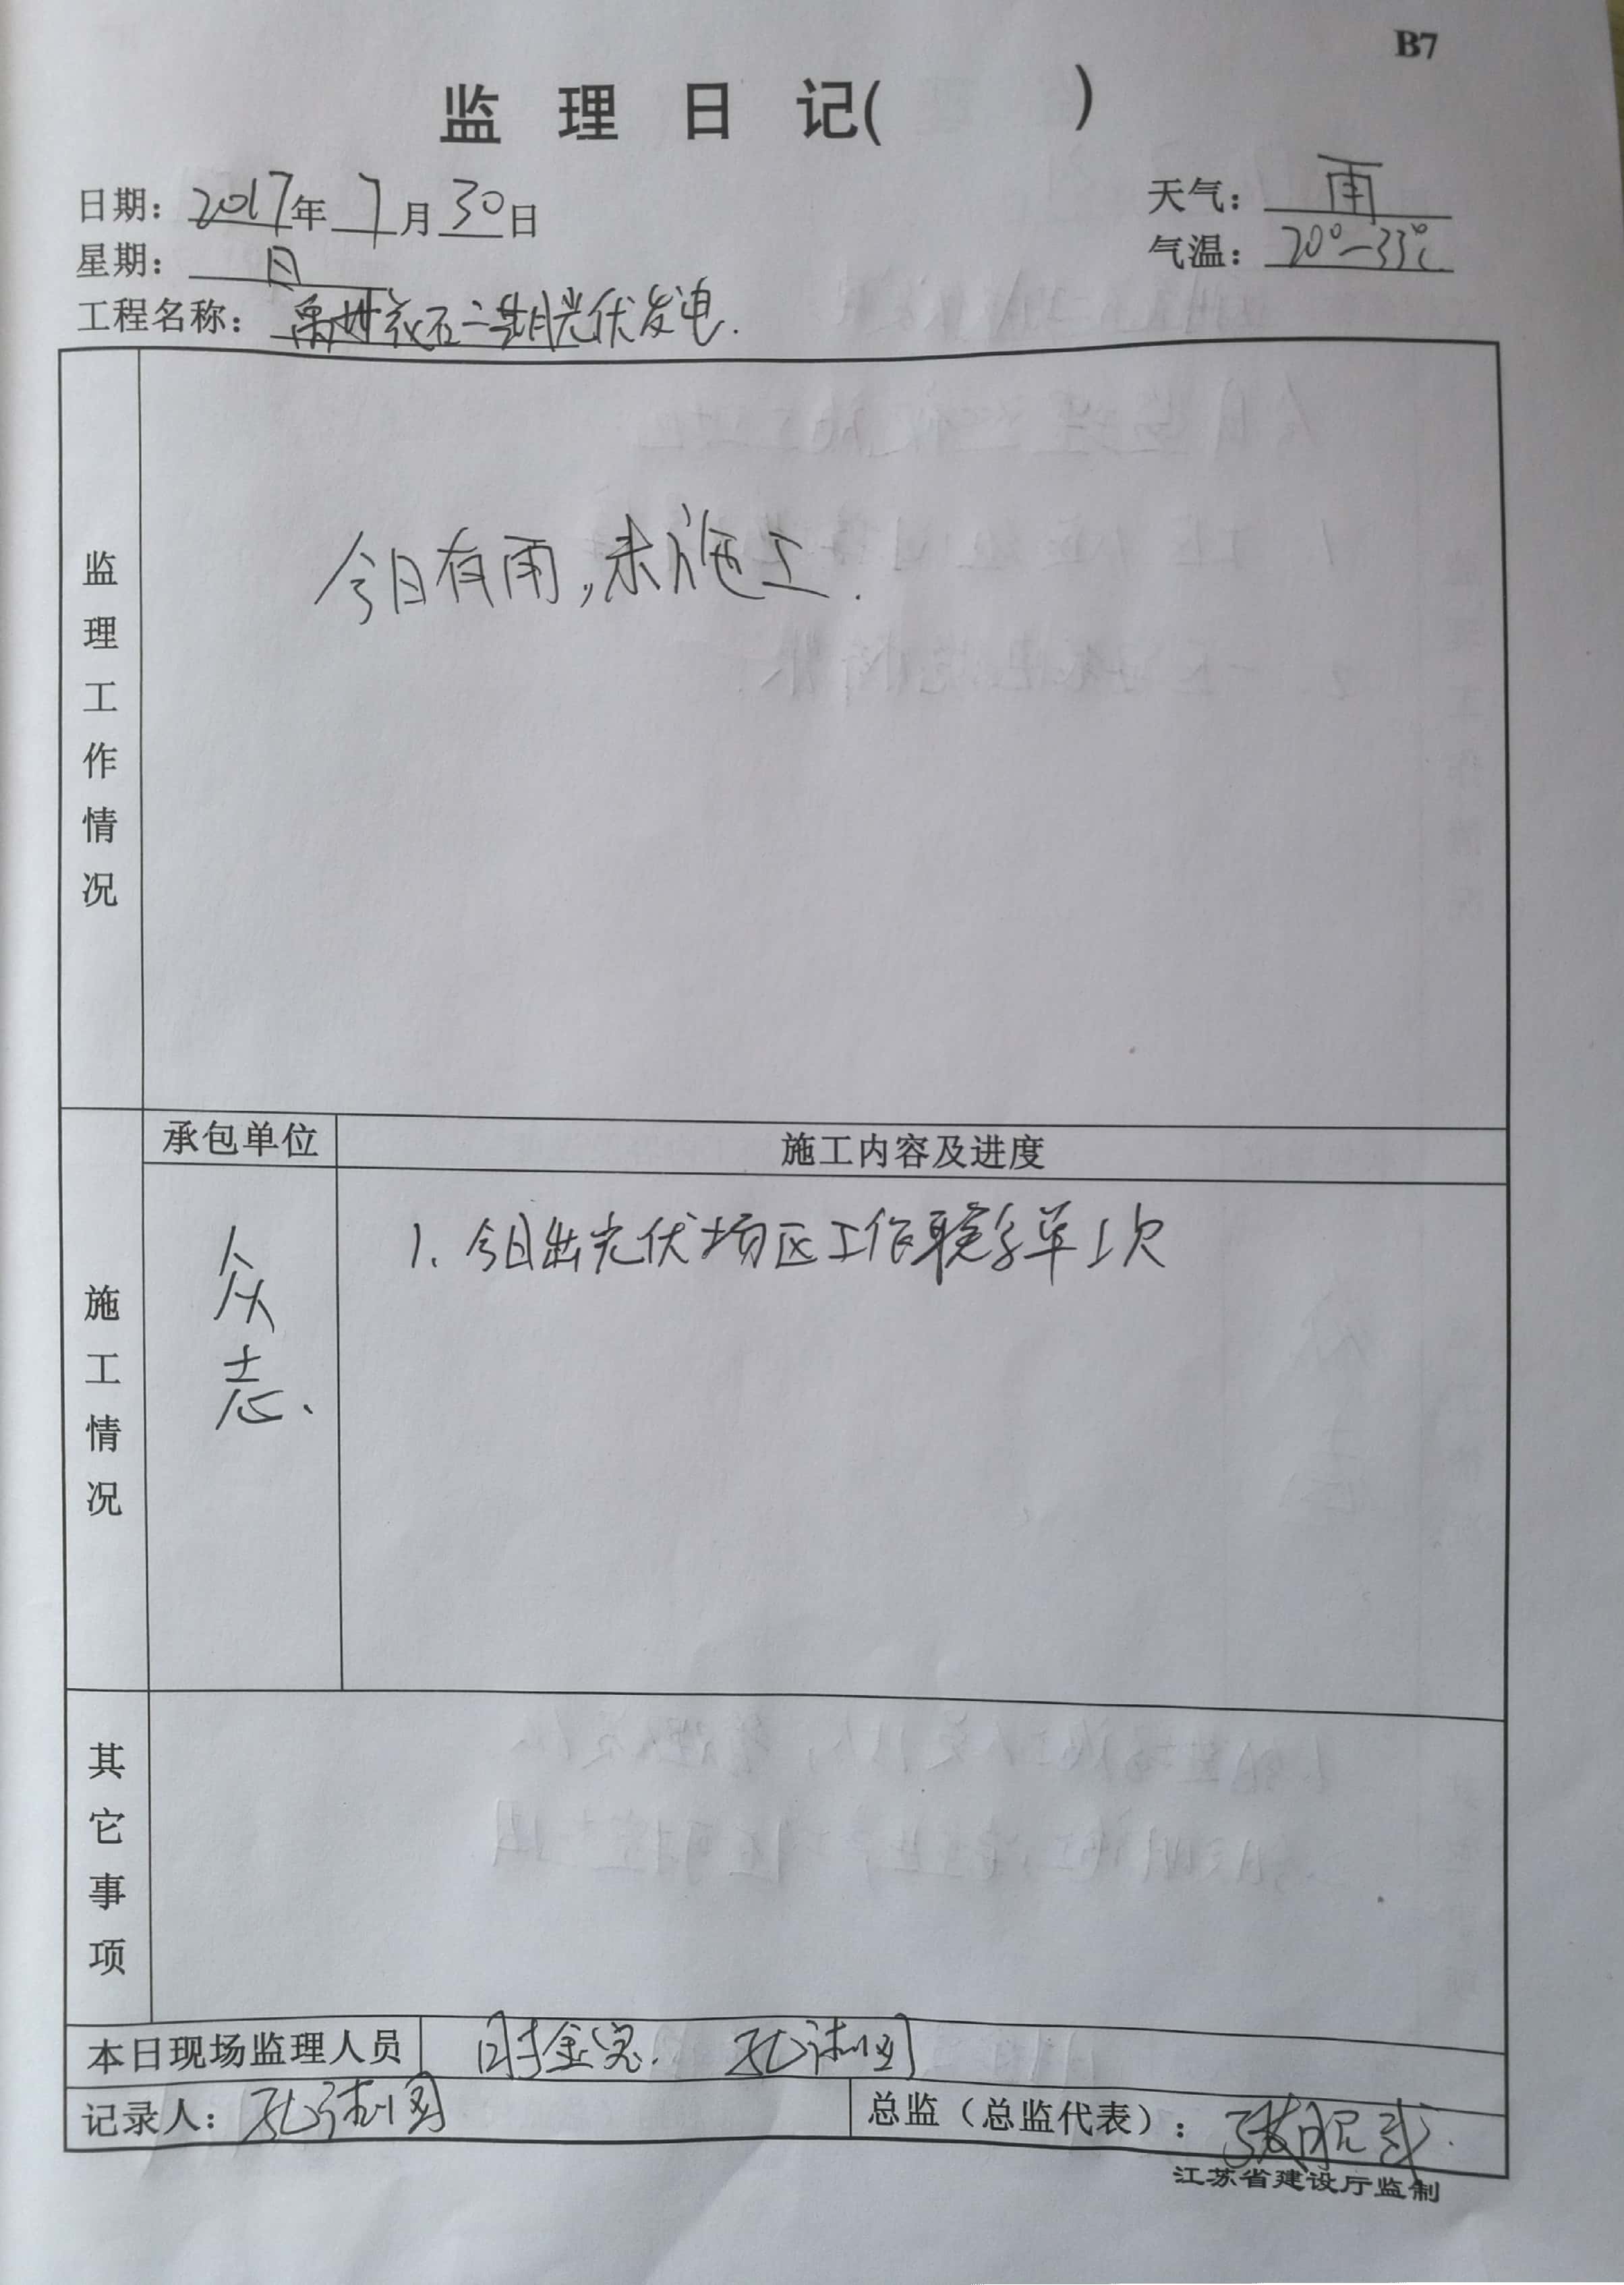 B7
监理日记( )
日期：2017年7月30日
天气：雨
星期：日
气温：20°—33℃
工程名称：禹州苌石二期光伏发电.
监理工作情况
今日有雨,未施工.
承包单位
施工内容及进度
施工情况
众志、
1、今日出光伏场区工作联系单1次
其它事项
本日现场监理人员
时金宽. 孔
记录人：孔
总监（总监代表）：张
江苏省建设厅监制